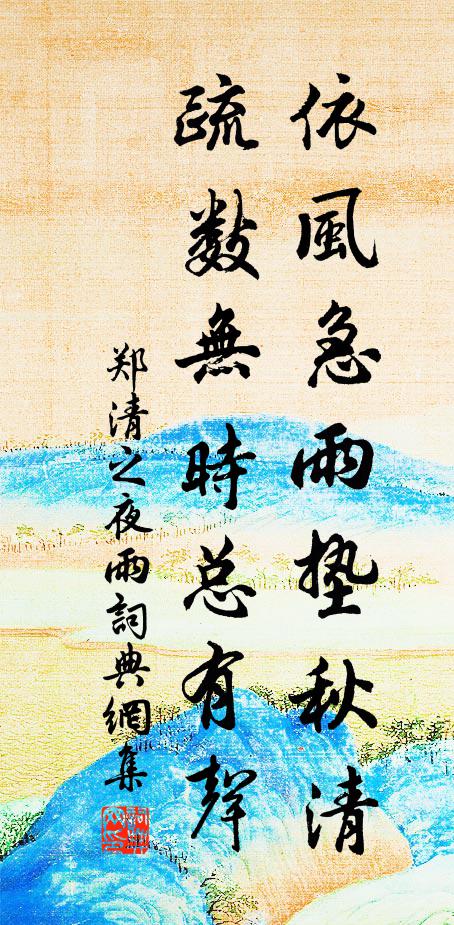 依風急雨墊秋清
疏數無時总有聲
郑清之夜雨詞典網集